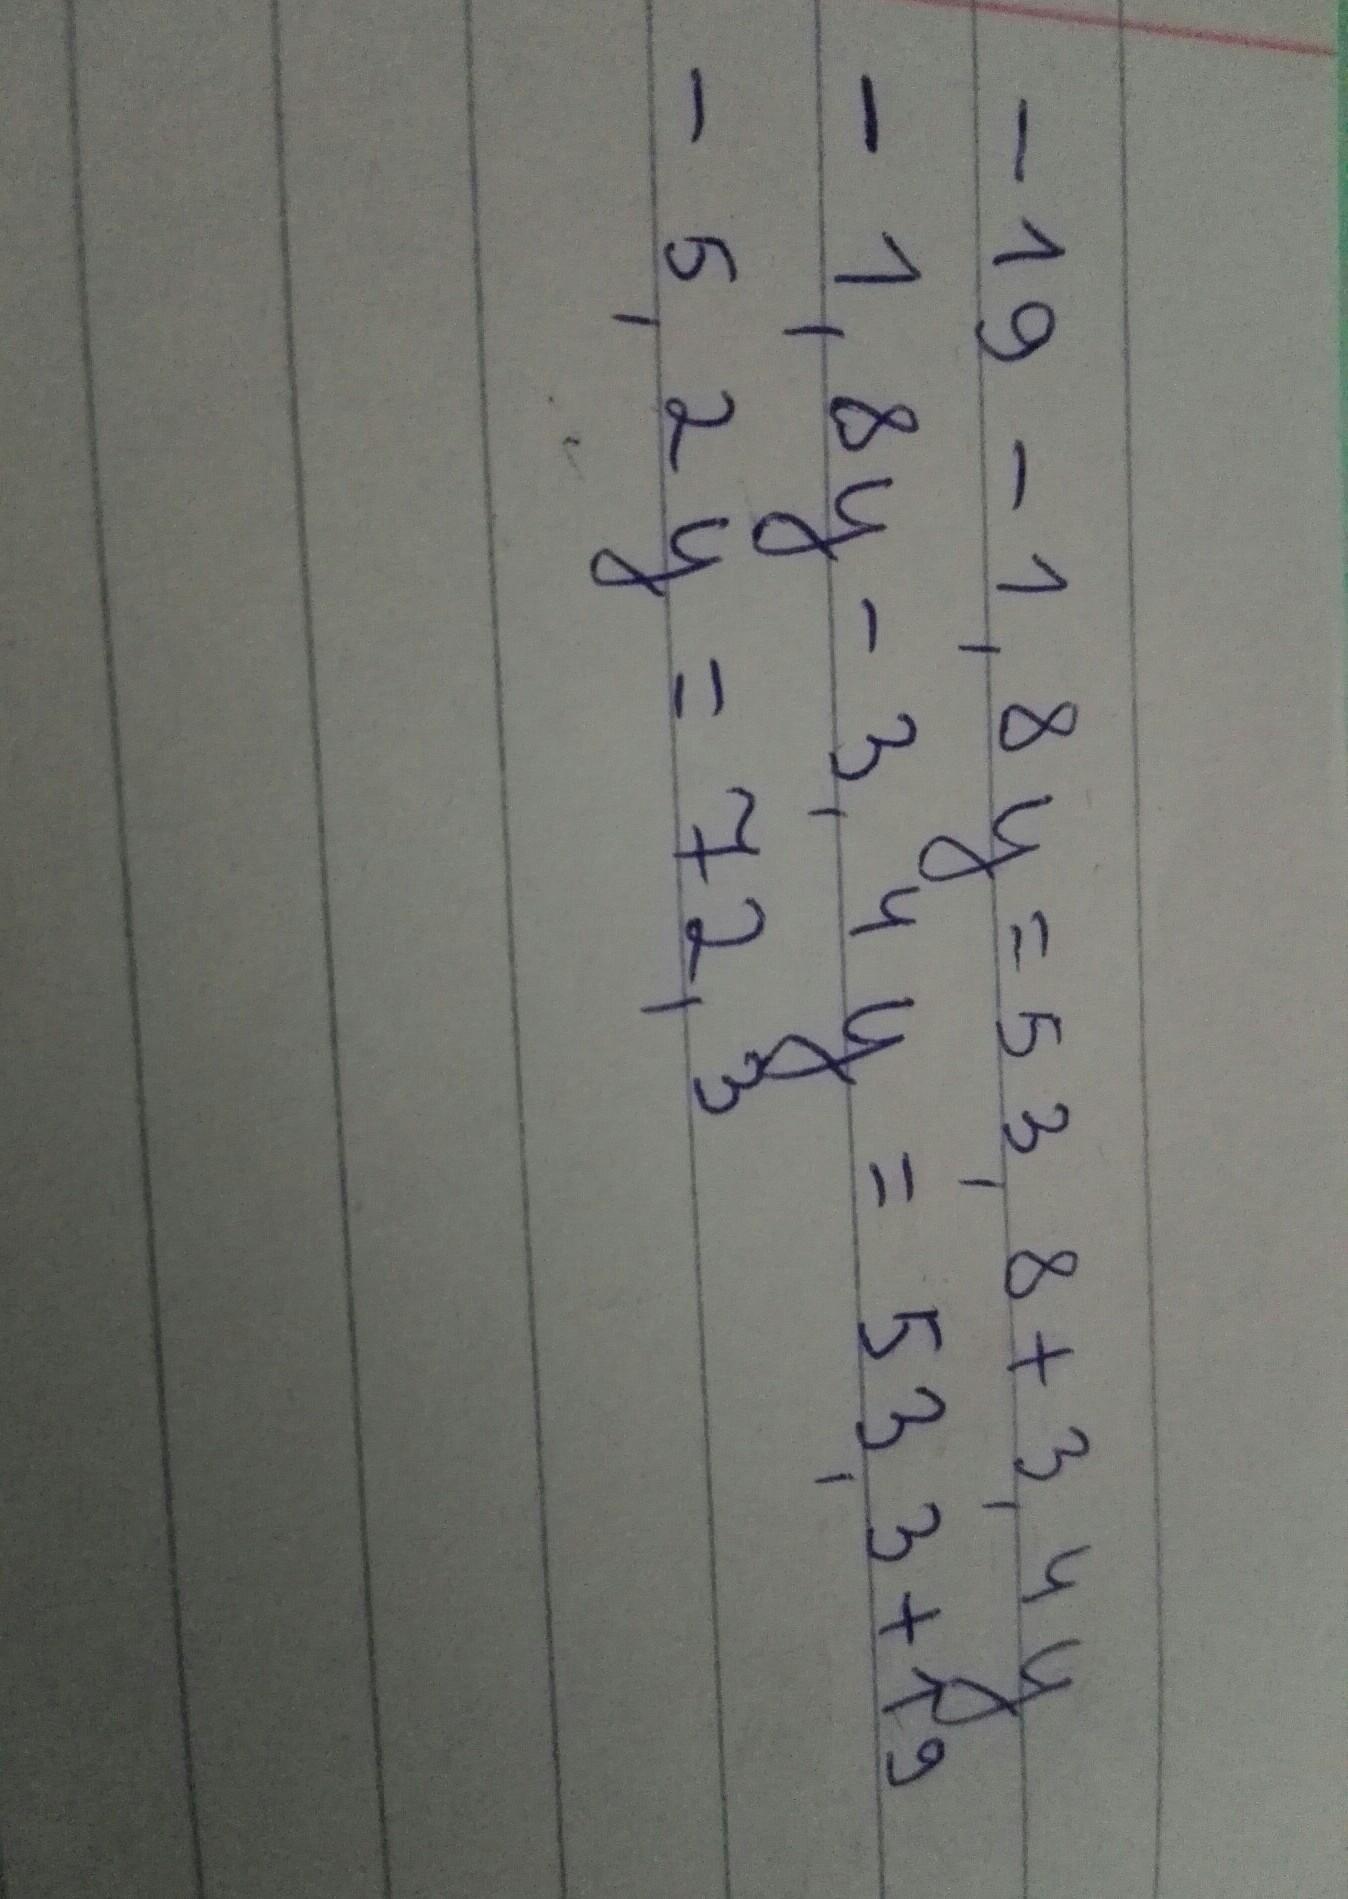 - 19 - 1,8y = 53,8 + 3,4y
- 1,8y - 3,4y = 53,3 + 19
- 5,2y = 72,3